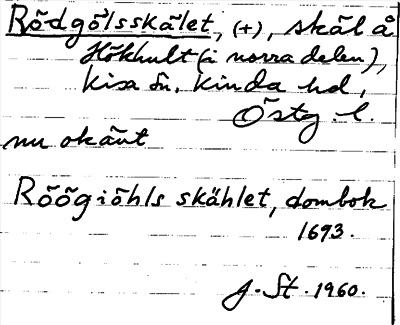 Rödgölsskälet, (+), skäl å
Hökhult (i norra delen),
Kisa sn, Kinda hd,
Östg. l.
nu okänt
Röögiöhls skählet, dombok
1693.
J. St. 1960.